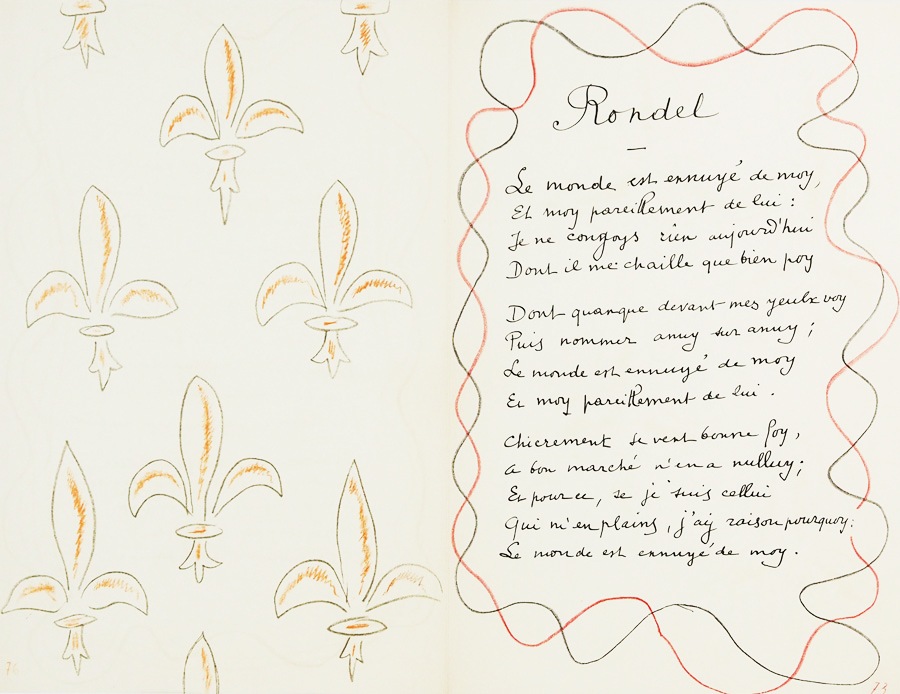 Rondel
Le monde est ennuyé de moy,
Et moy pareillement de lui :
Je ne congoys rien aujourd'hui
Dont il me chaille que bien poy
Dont quanque devant mes yeulx voy
Puis nommer anuy sur anuy ;
Le monde est ennuyé de moy
Et moy pareillement de lui .
Chierement se vent bonne foy ,
a bon marché n'en a nulluy ;
Et pour ce, se je suis cellui
Qui m'en plains , j'aÿ raison pourquoy :
Le monde est ennuyé de moy .
73